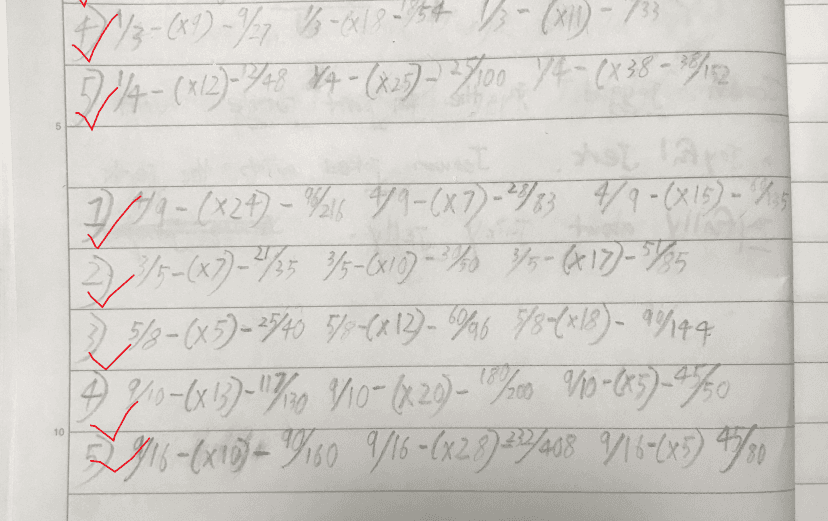 4) 1/3 - (x9) - 9/27 1/3 - (x18 - 18/54 1/3 - (x11) - /33
5) 1/4 - (x12) - 12/48 1/4 - (x25) - 25/100 1/4 - (x38 - 38/152
5
1) 4/9 - (x24) - 96/216 4/9 - (x7) - 28/83 4/9 - (x15) - 60/135
2) 3/5 - (x7) - 21/35 3/5 - (x10) - 30/50 3/5 - (x17) - 51/85
3) 5/8 - (x5) - 25/40 5/8 - (x12) - 60/96 5/8 - (x18) - 90/144
4) 9/10 - (x13) - 117/130 9/10 - (x20) - 180/200 9/10 - (x5) - 45/50
10
5) 9/16 - (x10) - 90/160 9/16 - (x28) - 232/408 9/16 - (x5) 45/80